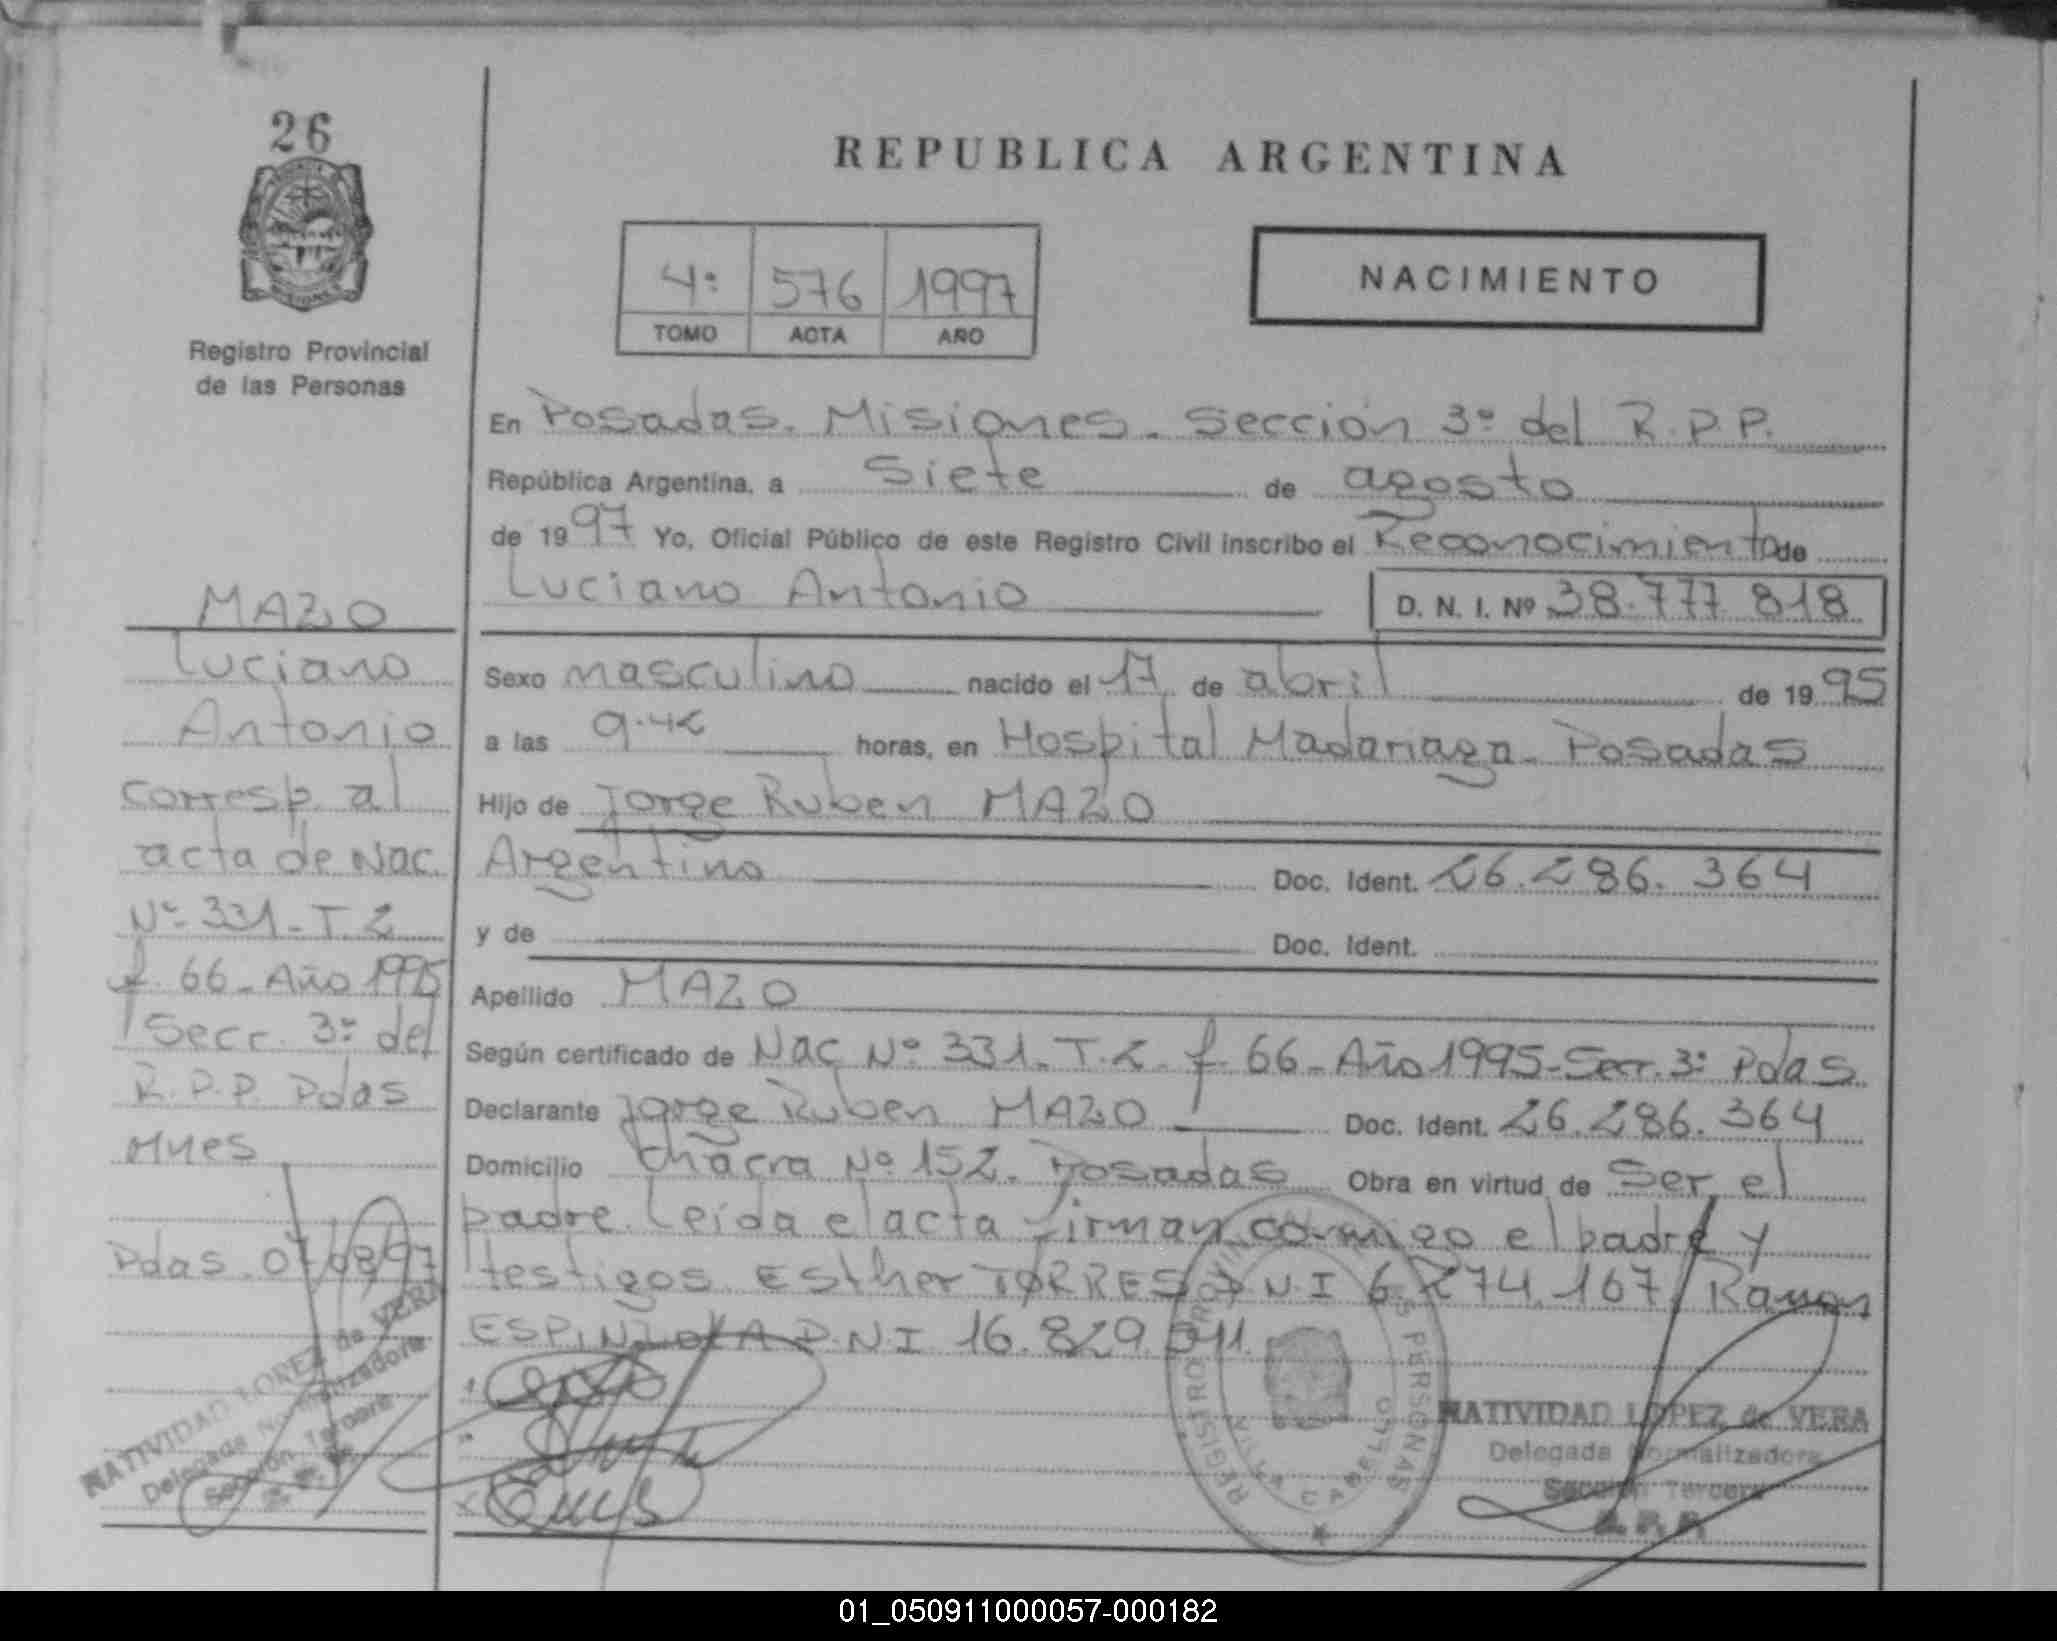 26
Registro Provincial
de las Personas
REPUBLICA ARGENTINA
4º 576 1997
TOMO ACTA AÑO
NACIMIENTO
En Posadas. Misiones. Sección 3º del R.P.P.
República Argentina, a Siete de agosto
de 1997 Yo, Oficial Público de este Registro Civil inscribo el Reconocimiento de
Luciano Antonio D. N. I. Nº 38.777.818
Sexo masculino nacido el 17 de abril de 1995
a las 9.42 horas, en Hospital Madariaga - Posadas
Hijo de Jorge Ruben MAZO
Argentino Doc. Ident. 26.286.364
y de Doc. Ident.
Apellido MAZO
Según certificado de Nac Nº 331 - T. 2 - f. 66 - Año 1995 - Secc. 3º Pdas.
Declarante Jorge Ruben MAZO Doc. Ident. 26.286.364
Domicilio Chacra Nº 152. Posadas Obra en virtud de Ser el
padre. Leída el acta firman conmigo el padre y
testigos. Esther TORRES D.N.I 6.274.167. Ramon
ESPINDOLA D.N.I 16.829.
MAZO
Luciano
Antonio
corresp. al
acta de Nac.
Nº 331 - T. 2
f. 66 - Año 1995
Secc. 3º del
R.P.P. Pdas
Mnes
Pdas. 07/08/97
NATIVIDAD LOPEZ de VERA
Delegada Normalizadora
Sección Tercera
R.P.P.
REGISTRO PROVINCIAL DE LAS PERSONAS
VILLA CABELLO
NATIVIDAD LOPEZ de VERA
Delegada Normalizadora
Sección Tercera
R.P.P.
01_050911000057-000182